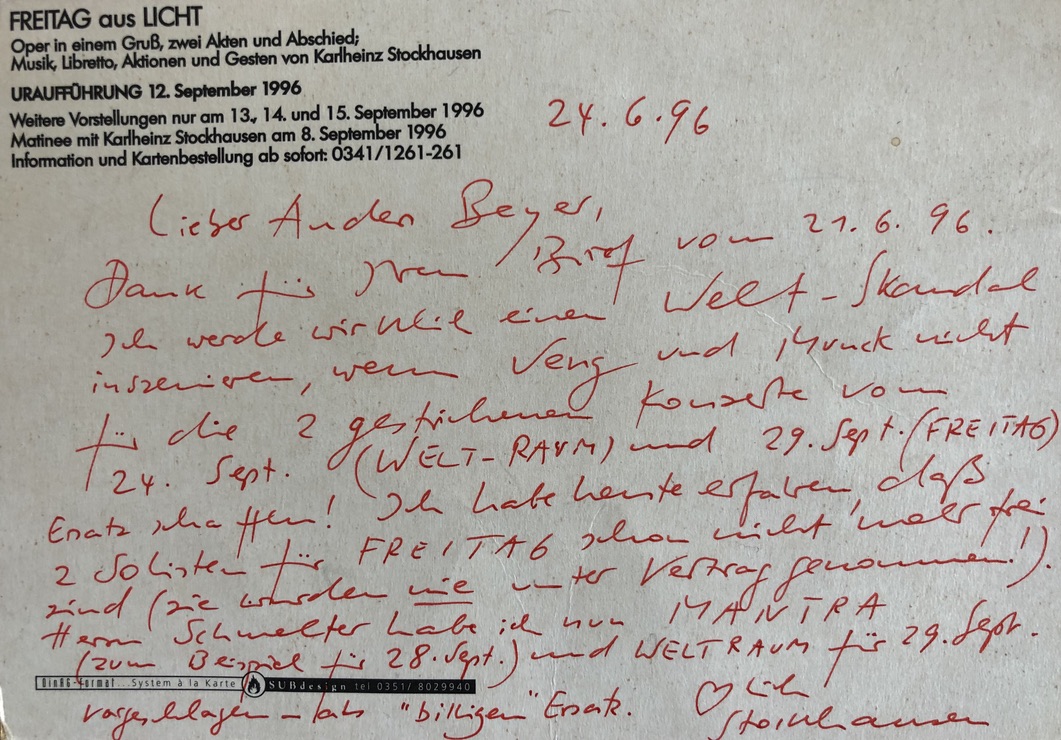 FREITAG aus LICHT
Oper in einem Gruß, zwei Akten und Abschied;
Musik, Libretto, Aktionen und Gesten von Karlheinz Stockhausen
URAUFFÜHRUNG 12. September 1996
Weitere Vorstellungen nur am 13., 14. und 15. September 1996
Matinee mit Karlheinz Stockhausen am 8. September 1996
Information und Kartenbestellung ab sofort: 0341/1261-261
24.6.96
Lieber Anders Beyer,
Dank für Ihren Brief vom 21.6.96.
Ich werde wirklich einen Welt-Skandal
inszenieren, wenn Veng und Munck nicht
für die 2 gestrichenen Konzerte vom
24. Sept. (WELT-RAUM) und 29. Sept. (FREITAG)
Ersatz schaffen! Ich habe heute erfahren, daß
2 Solisten für FREITAG schon nicht mehr frei
sind (sie wurden nie unter Vertrag genommen!).
Herrn Schmelter habe ich nun MANTRA
(zum Beispiel für 28. Sept.) und WELTRAUM für 29. Sept.
DinA6-Format...System à la Karte SUBdesign tel 0351/8029940
vorgeschlagen – als "billigen" Ersatz.
♡lich
Stockhausen